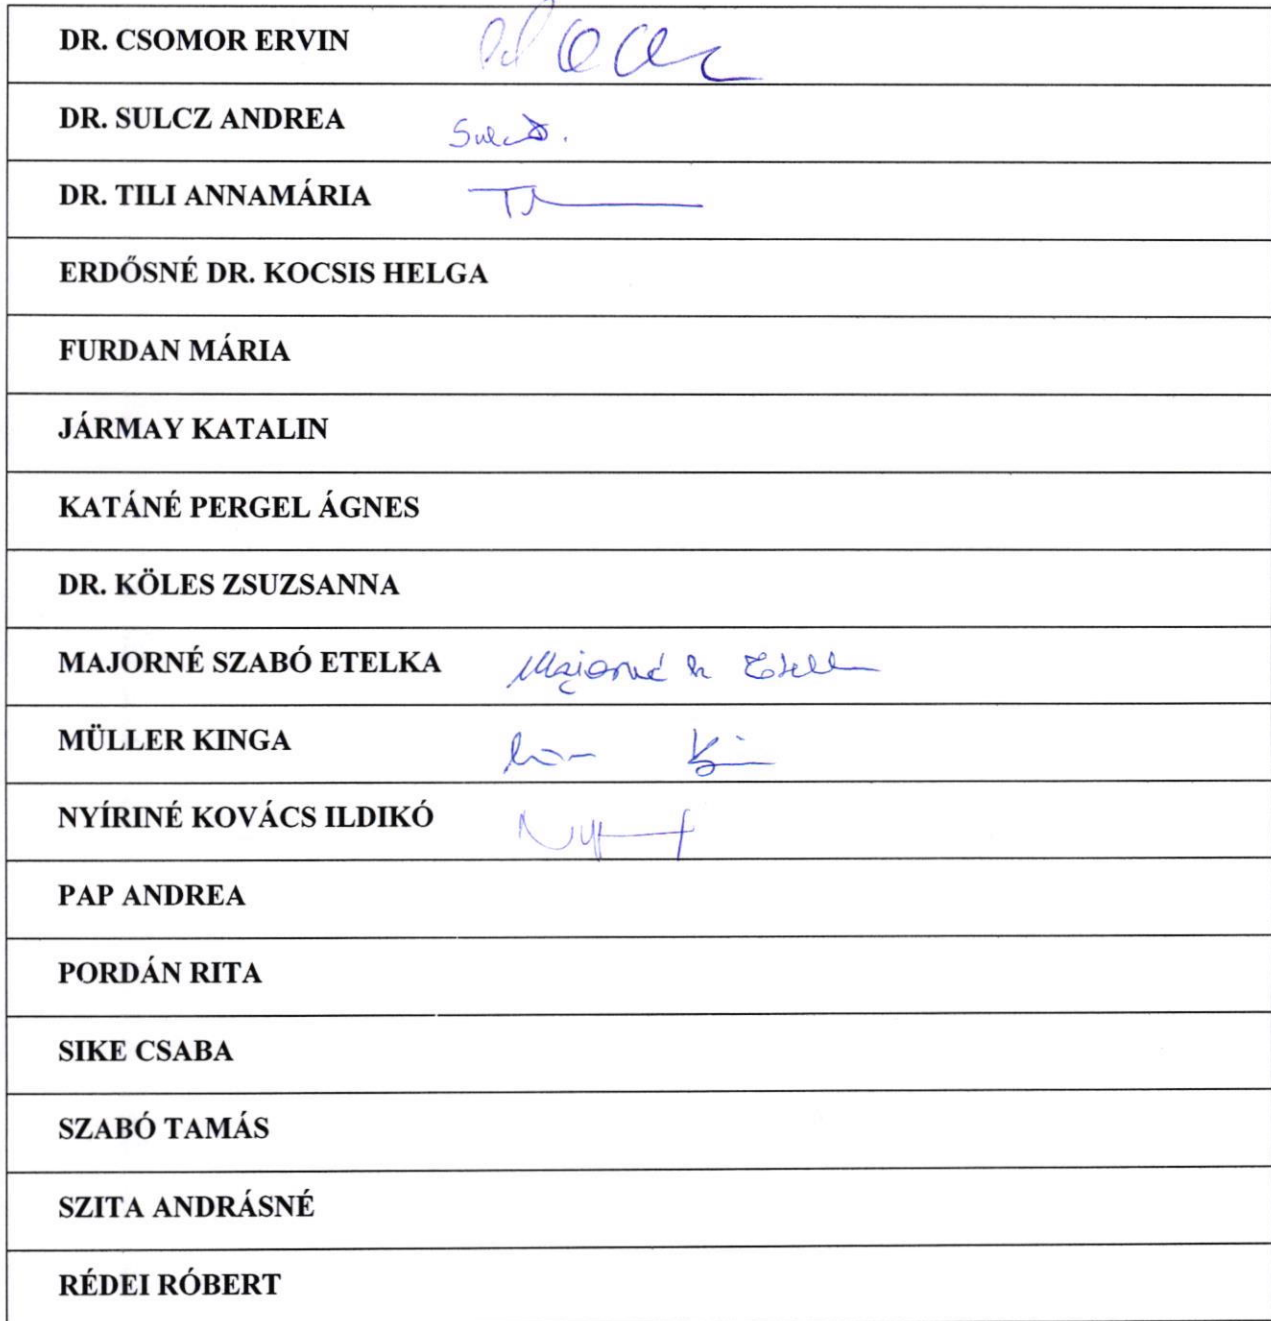 DR. CSOMOR ERVIN
DR. SULCZ ANDREA
DR. TILI ANNAMÁRIA
ERDŐSNÉ DR. KOCSIS HELGA
FURDAN MÁRIA
JÁRMAY KATALIN
KATÁNÉ PERGEL ÁGNES
DR. KÖLES ZSUZSANNA
MAJORNÉ SZABÓ ETELKA Majorné
MÜLLER KINGA
NYÍRINÉ KOVÁCS ILDIKÓ
PAP ANDREA
PORDÁN RITA
SIKE CSABA
SZABÓ TAMÁS
SZITA ANDRÁSNÉ
RÉDEI RÓBERT